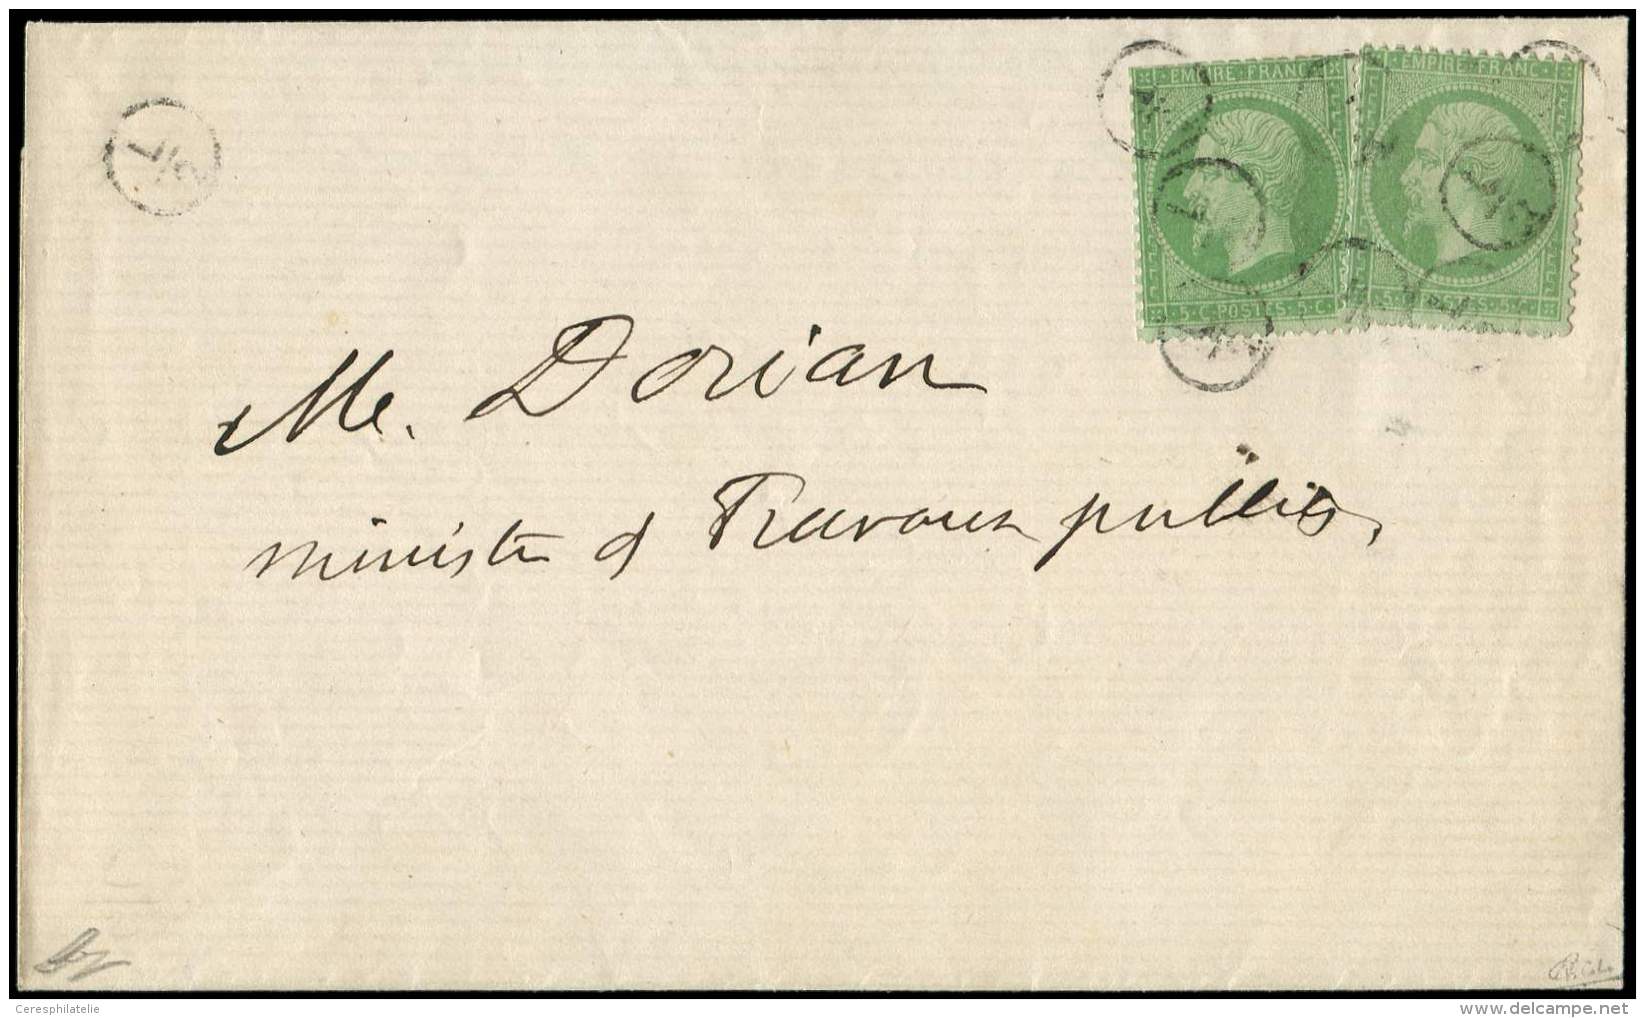 EMPIRE·FRANC·
EMPIRE·FRANC·
L/2
5·C·POSTES·5·C·
Me. Dorian
ministre d Travaux publics,
Ceresphilatelie
delcampe.net